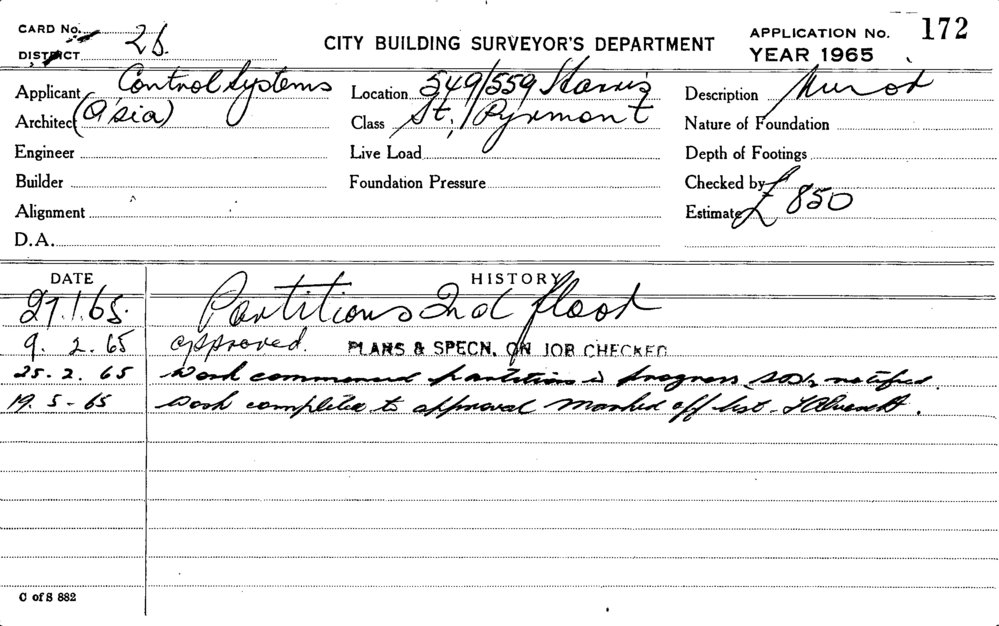 CARD No.
DISTRICT 2b.
CITY BUILDING SURVEYOR'S DEPARTMENT
APPLICATION No. 172
YEAR 1965
Applicant Control Systems
Architect (Asia)
Engineer
Builder
Alignment
D.A.
Location 549/559 Harris
Class St., Pyrmont
Live Load
Foundation Pressure
Description Minor
Nature of Foundation
Depth of Footings
Checked by
Estimate £850
DATE HISTORY
27.1.65. Partitions 2nd floor
9. 2. 65 approved. PLANS & SPECN. ON JOB CHECKED
25. 2. 65 Work commenced partitions in progress notified.
19. 5 - 65 Work completed to approval marked off list
C of S 882